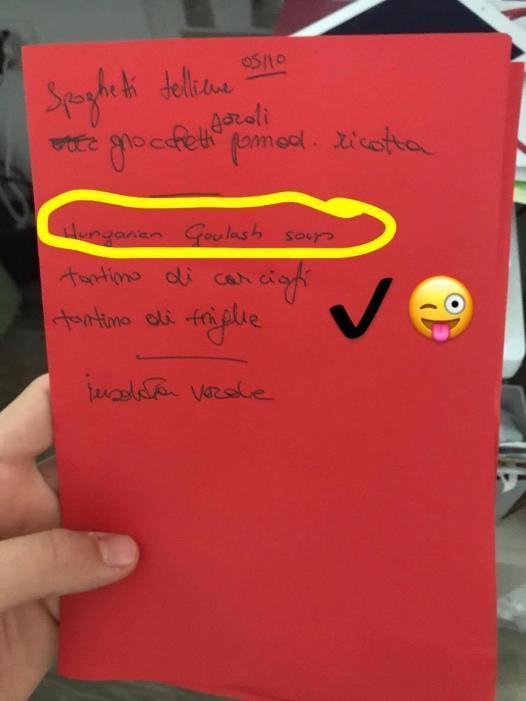 05/10
Spaghetti telline
sardi
gnocchetti pomod. ricotta
Hungarian Goulash soup
tortino di carciofi
tortino di triglie
insalata verde